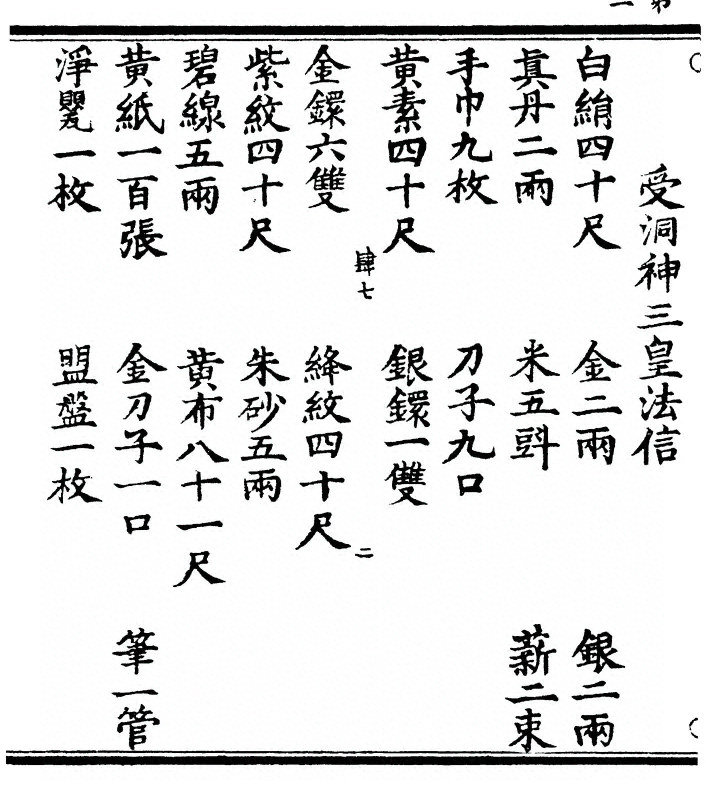 受洞神三皇法信
白絹四十尺 金二兩 銀二兩
眞丹二兩 米五㪷 薪二束
手巾九枚 刀子九口
黃素四十尺 銀鐶一雙
肆七 二
金鐶六雙 絳紋四十尺
紫紋四十尺 朱砂五兩
碧線五兩 黃布八十一尺
黃紙一百張 金刀子一口 筆一管
淨甖一枚 盟盤一枚